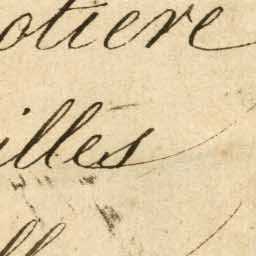 otiere
illes